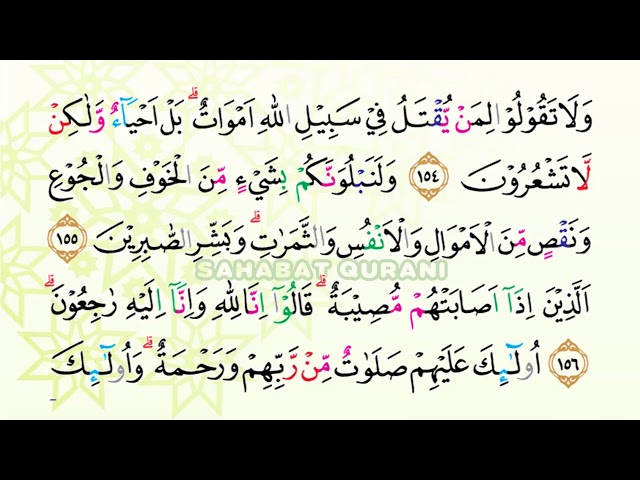 وَلَا تَقُوْلُوْا لِمَنْ يُّقْتَلُ فِيْ سَبِيْلِ اللّٰهِ اَمْوَاتٌ ۗ بَلْ اَحْيَاۤءٌ وَّلٰكِنْ
لَّا تَشْعُرُوْنَ ١٥٤ وَلَنَبْلُوَنَّكُمْ بِشَيْءٍ مِّنَ الْخَوْفِ وَالْجُوْعِ
وَنَقْصٍ مِّنَ الْاَمْوَالِ وَالْاَنْفُسِ وَالثَّمَرٰتِ ۗ وَبَشِّرِ الصّٰبِرِيْنَ ١٥٥
SAHABAT QURANI
الَّذِيْنَ اِذَآ اَصَابَتْهُمْ مُّصِيْبَةٌ ۗ قَالُوْٓا اِنَّا لِلّٰهِ وَاِنَّآ اِلَيْهِ رٰجِعُوْنَ ۗ
١٥٦ اُولٰۤىِٕكَ عَلَيْهِمْ صَلَوٰتٌ مِّنْ رَّبِّهِمْ وَرَحْمَةٌ ۗ وَاُولٰۤىِٕكَ